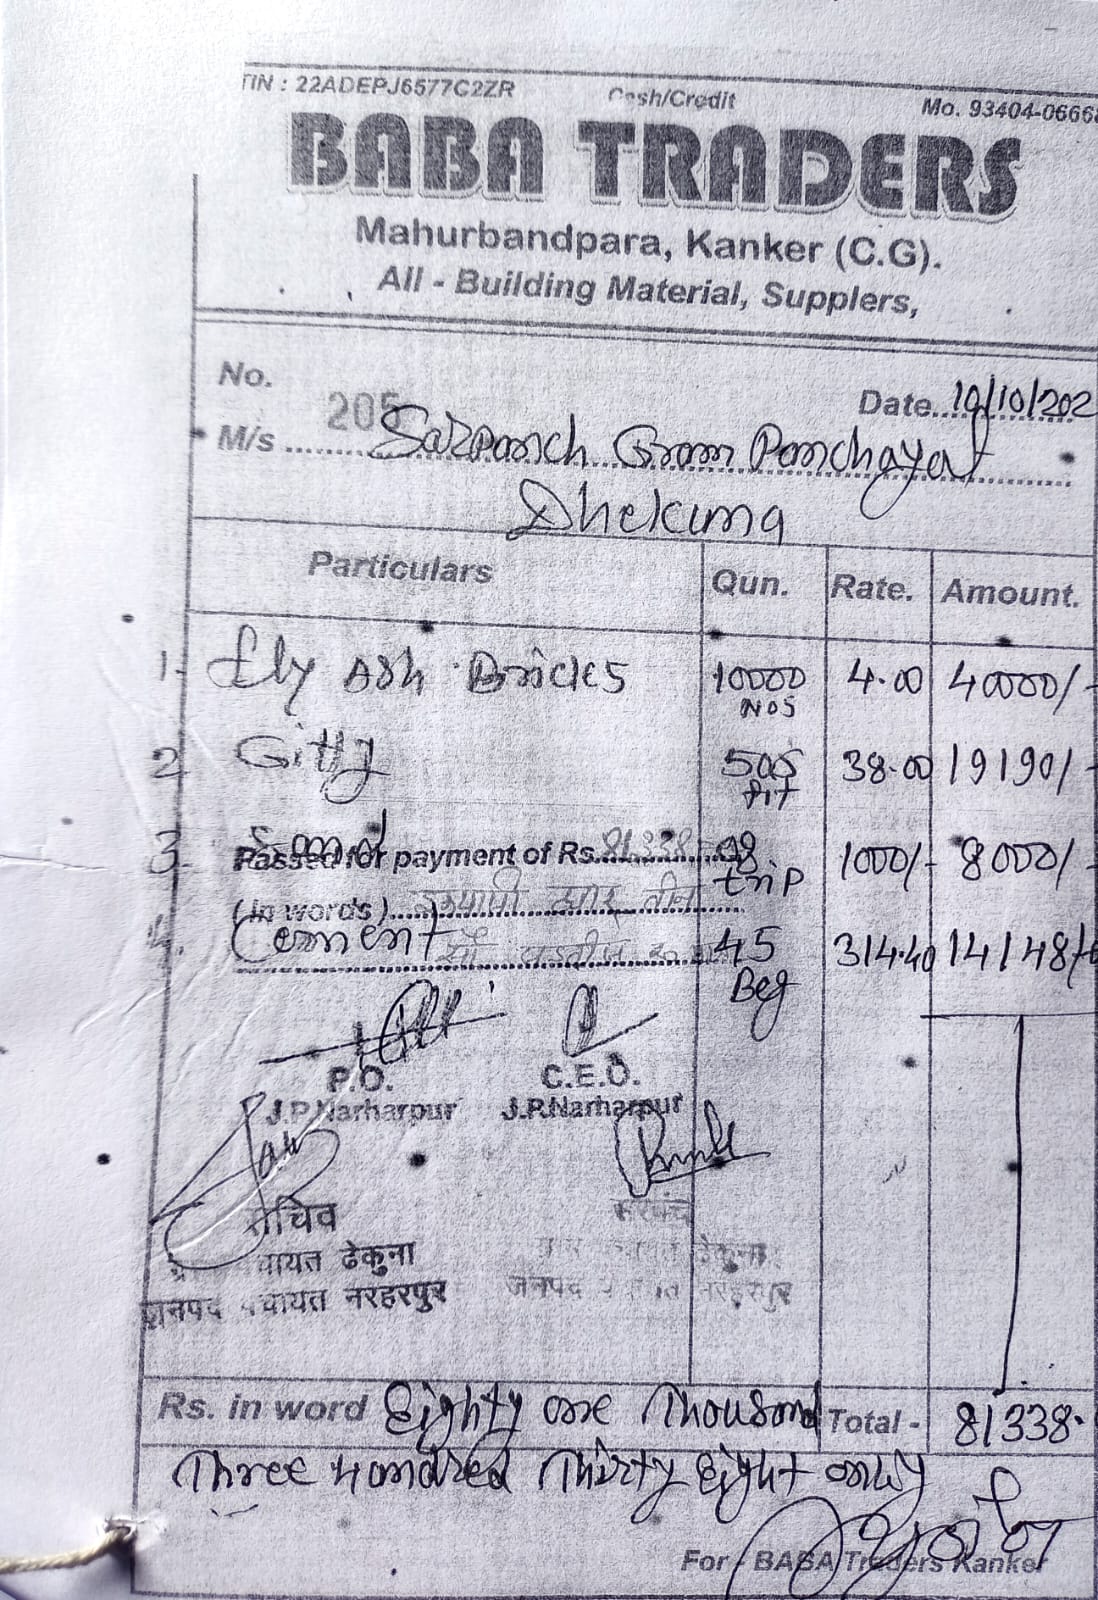 TIN : 22ADEPJ6577C2ZR Cash/Credit Mo. 93404-0666
BABA TRADERS
Mahurbandpara, Kanker (C.G).
All - Building Material, Supplers,
No. 205 Date. 19/10/202
M/s Sarpanch Gram Panchayat
Dhekuna
Particulars Qun. Rate. Amount.
1- Fly Ash Bricks 10000 Nos 4.00 40000/-
2 Gitty 505 38.00 19190/-
3- Sand 08 trip 1000/- 8000/-
Passed for payment of Rs. 81338
(In words)
4. Cement 45 Beg 314.40 14148/-
P.O. C.E.O.
J.P.Narharpur J.P.Narharpur
सचिव सरपंच
पंचायत ढेकुना ढेकुना
जनपद पंचायत नरहरपुर जनपद नरहरपुर
Rs. in word Eighty one Thousand Total - 81338.
Three Hondred Thirty Eight only
For - BABA Traders Kanker